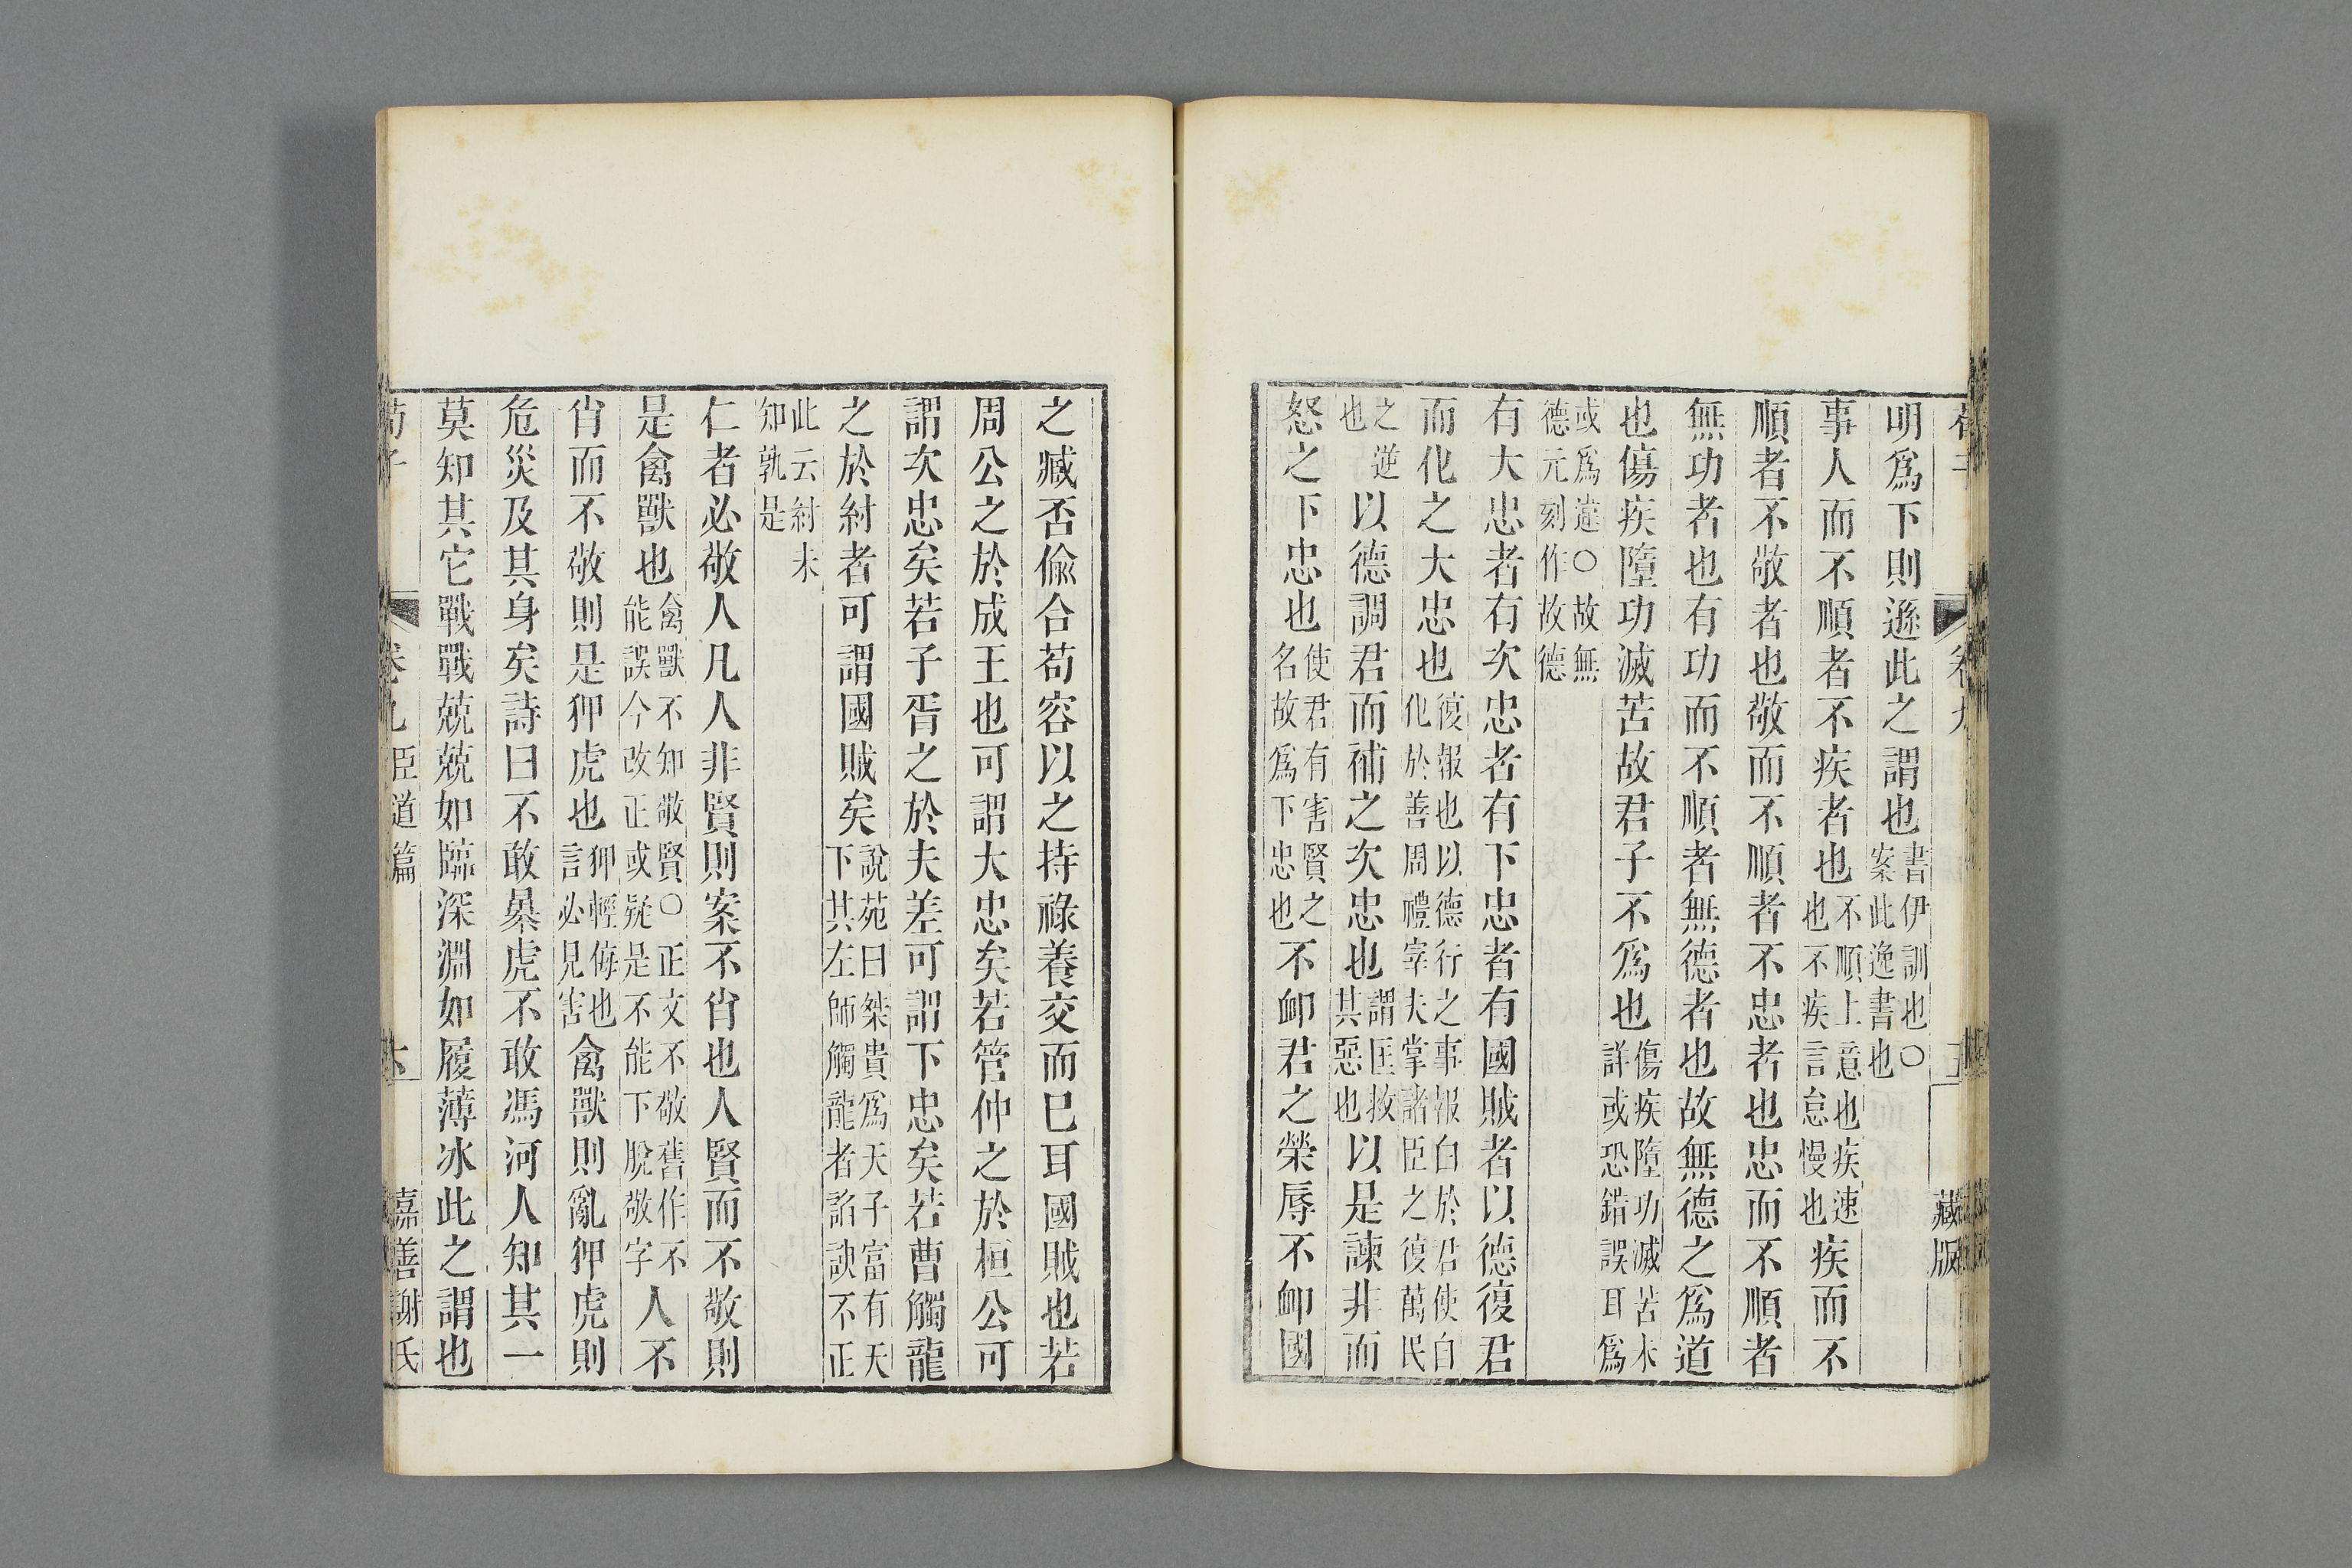 明爲下則遜此之謂也書伊訓也〇案此逸書也
事人而不順者不疾者也不順上意也疾速也不疾言怠慢也疾而不
順者不敬者也敬而不順者不忠者也忠而不順者
無功者也有功而不順者無德者也故無德之爲道
也傷疾墮功滅苦故君子不爲也傷疾墮功滅苦未詳或恐錯誤耳爲
或爲違〇故無德元刻作故德
有大忠者有次忠者有下忠者有國賊者以德復君
而化之大忠也復報也以德行之事報白於君使自化於善周禮宰夫掌諸臣之復萬民
之逆也以德調君而補之次忠也謂匡救其惡也以是諫非而
怒之下忠也使君有害賢之名故爲下忠也不卹君之榮辱不卹國
藏版
之臧否偸合苟容以之持祿養交而已耳國賊也若
周公之於成王也可謂大忠矣若管仲之於桓公可
謂次忠矣若子胥之於夫差可謂下忠矣若曹觸龍
之於紂者可謂國賊矣說苑曰桀貴爲天子富有天下其左師觸龍者諂諛不正
此云紂未知孰是
仁者必敬人凡人非賢則案不肖也人賢而不敬則
是禽獸也禽獸不知敬賢〇正文不敬舊作不能誤今改正或疑是不能下脫敬字人不
肖而不敬則是狎虎也狎輕侮也言必見害禽獸則亂狎虎則
危災及其身矣詩曰不敢暴虎不敢馮河人知其一
莫知其它戰戰兢兢如臨深淵如履薄冰此之謂也
荀子 卷九臣道篇 嘉善謝氏